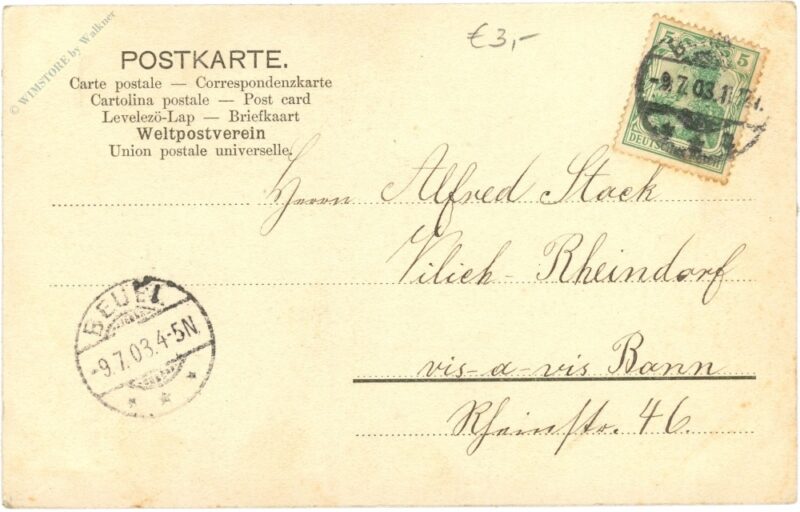 © WIMSTORE by Walkner
€3,-
POSTKARTE.
Carte postale — Correspondenzkarte
Cartolina postale — Post card
Levelezö-Lap — Briefkaart
Weltpostverein
Union postale universelle.
5 5
-9.7.03.11-12V.
DEUTSCHES REICH
Herrn Alfred Stack
Vilich-Rheindorf
vis-a-vis Bonn
Rheinstr. 46.
BEUEL
-9.7.03.4-5N.